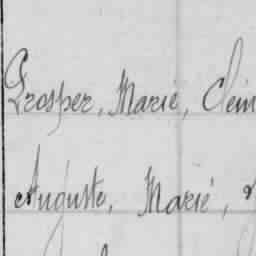 Prosper, Marie, Clém
Auguste, Marie,